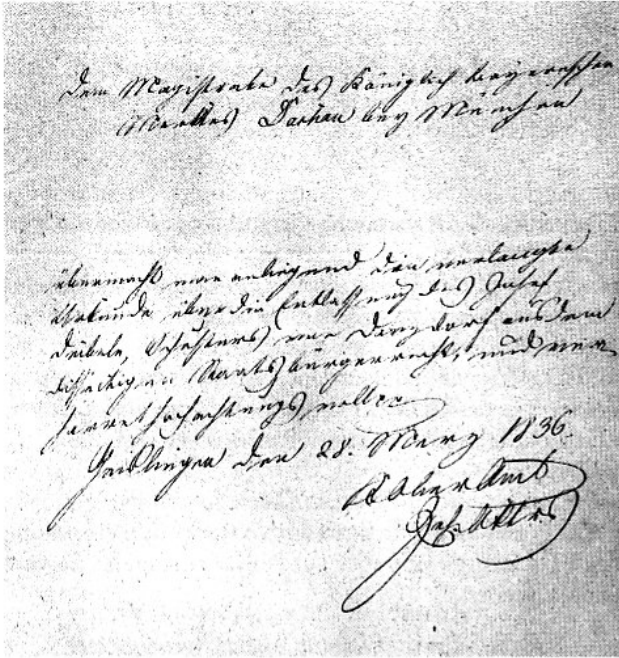 Dem Magistrate des Königlich bayerischen
Marktes Dachau bey München
übermacht man anliegend die verlangte
Urkunde über die Entlassung des Josef
Deibele, Schusters von Donzdorf aus dem
disseitigen Staatsbürgerrecht, und ver
harret hochachtungsvollst
Geislingen den 28. Merz 1836.
K OberAmt